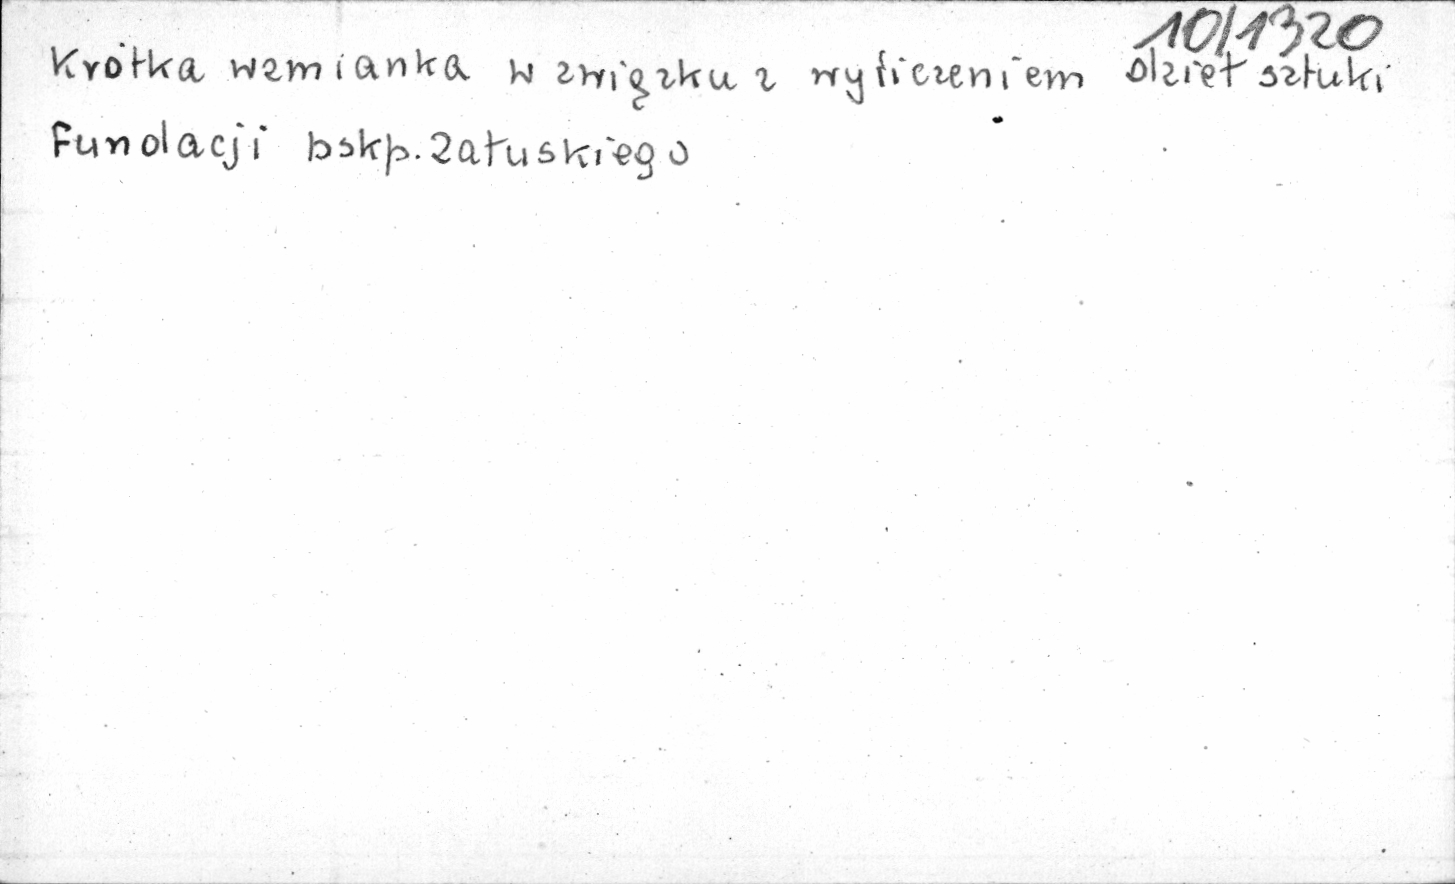 10/1320
Krótka wzmianka w związku z wyliczeniem dzieł sztuki
Fundacji bskp. Załuskiego